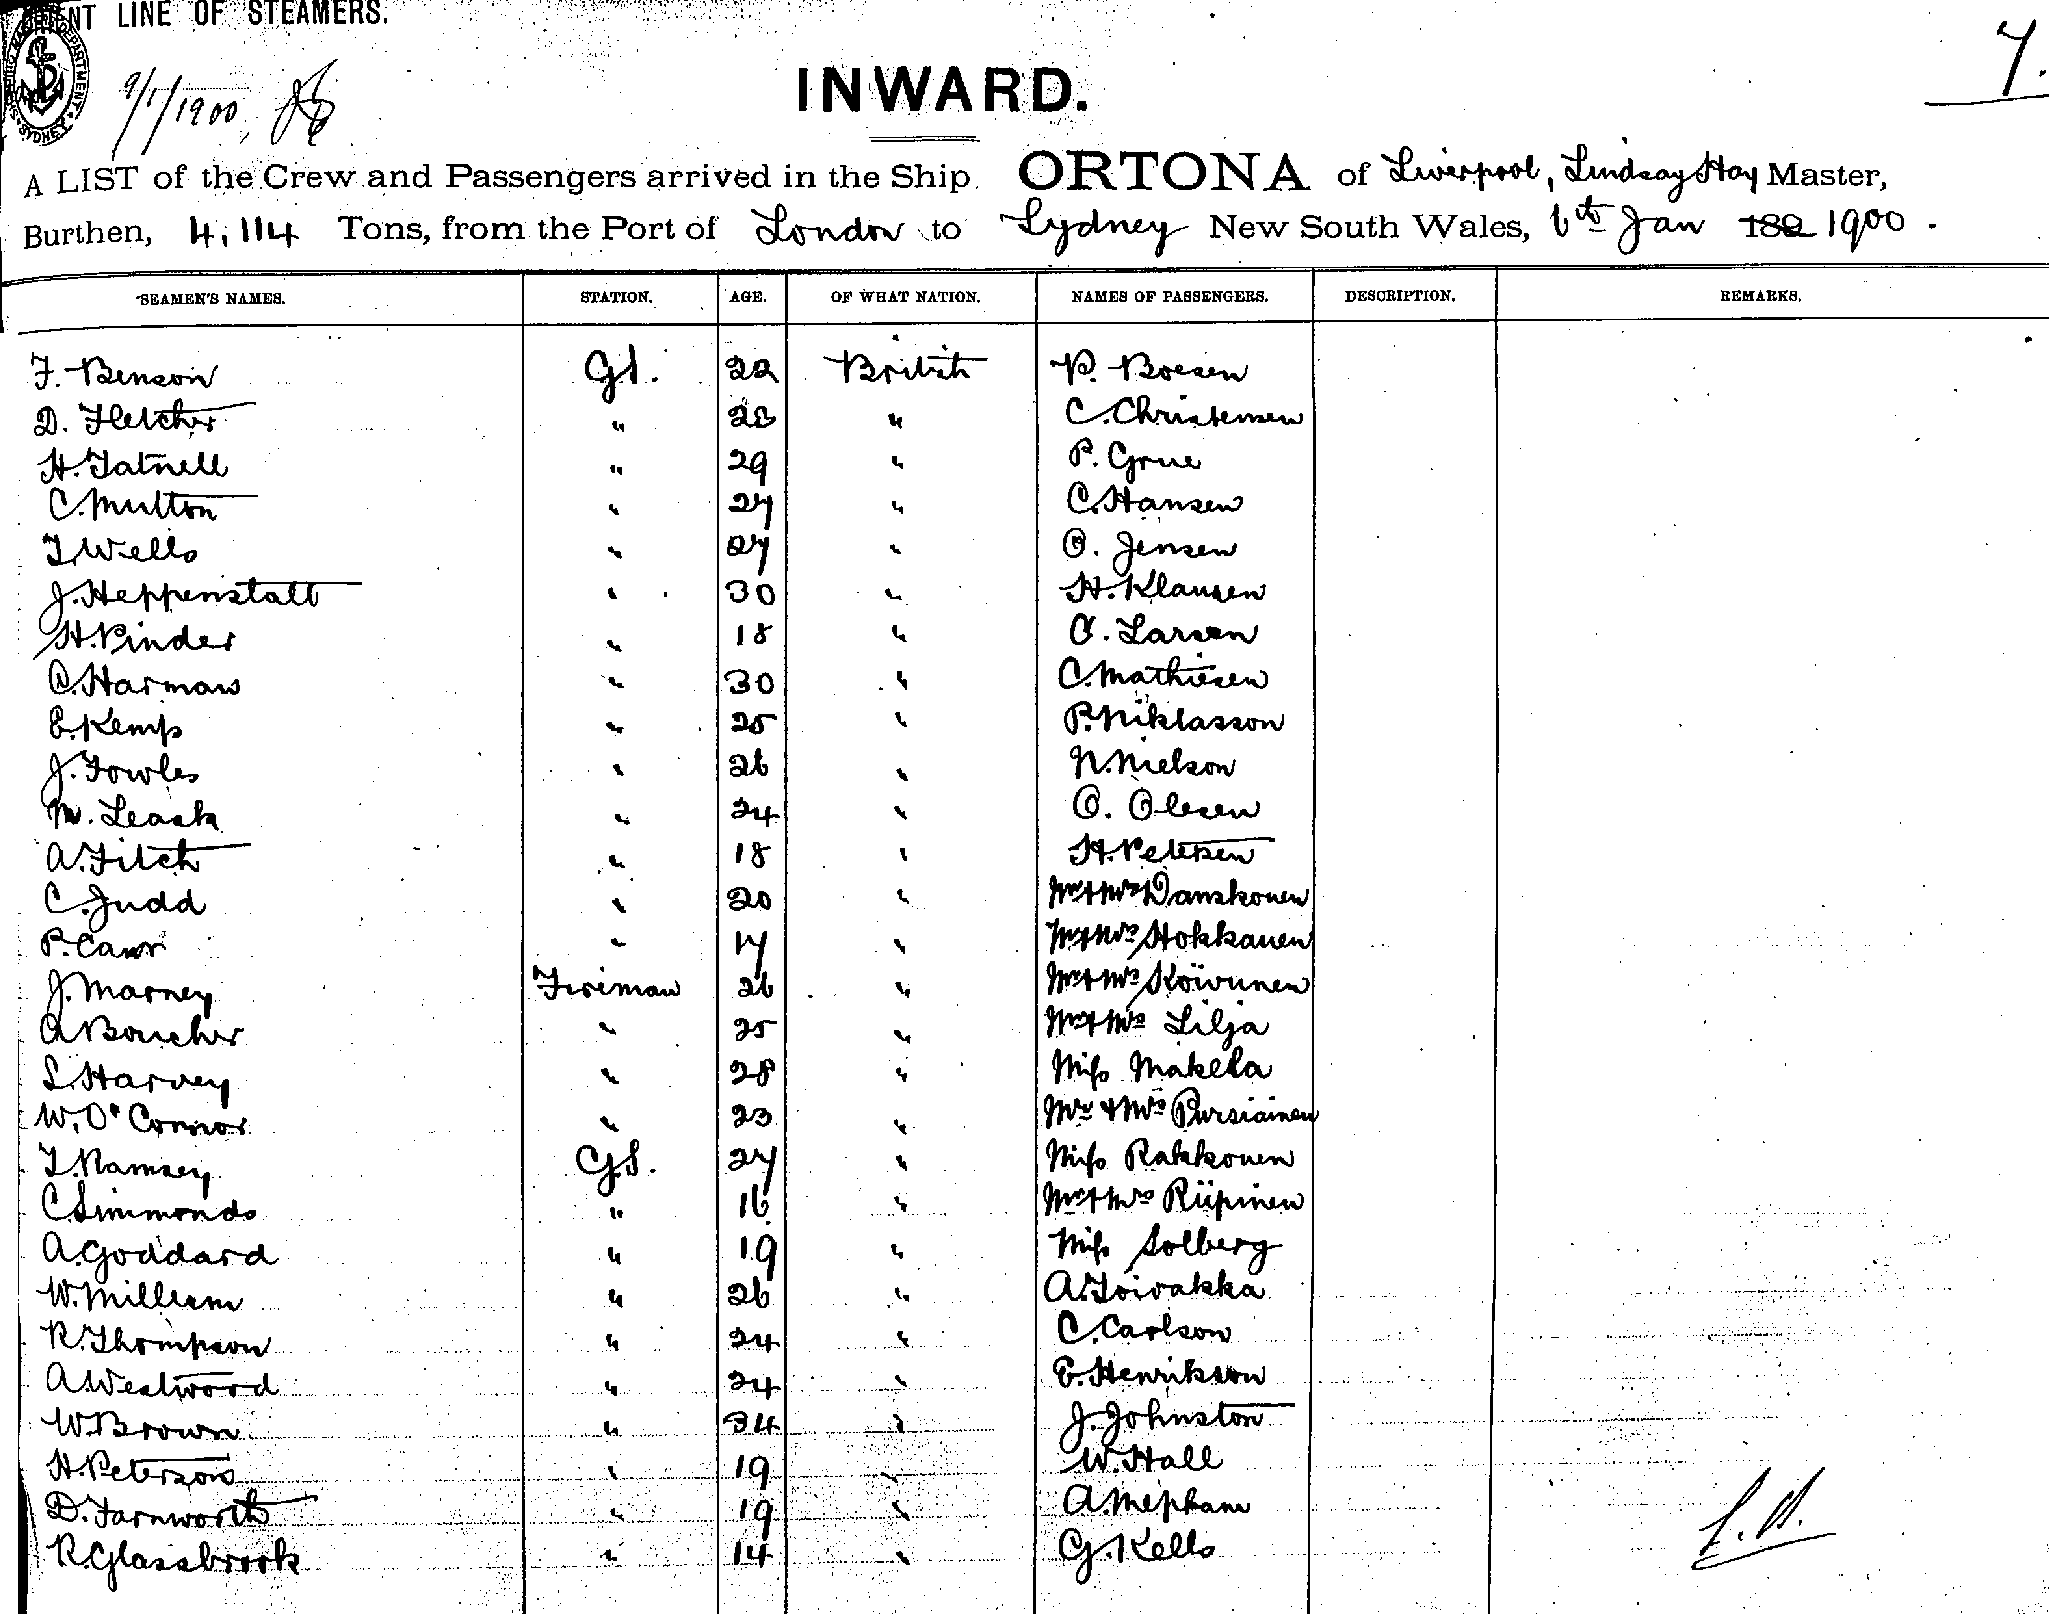 ENT LINE OF STEAMERS.
9/1/1900
7.
INWARD.
A LIST of the Crew and Passengers arrived in the Ship ORTONA of Liverpool, Lindsay Hay Master,
Burthen, 4,114 Tons, from the Port of London to Sydney New South Wales, 6th Jan 189 1900.
SEAMEN'S NAMES. STATION. AGE. OF WHAT NATION. NAMES OF PASSENGERS. DESCRIPTION. REMARKS.
F. Benson G.S. 22 British P. Boesen
D. Fletcher " 23 " C. Christensen
H. Tatnell " 29 " P. Grue
C. Multon " 27 " C. Hansen
T. Wells " 27 " O. Jensen
J. Heppenstall " 30 " H. Klausen
H. Pinder " 18 " O. Larsen
C. Harman " 30 " C. Mathiesen
E. Kemp " 25 " P. Niklasson
J. Fowles " 26 " N. Nielson
M. Leask " 24 " O. Olesen
A. Fitch " 18 " H. Petersen
C. Judd " 20 " Mr & Mrs Danskonen
P. Carr " 17 " Mr & Mrs Hokkanen
J. Marney Fireman 26 " Mr & Mrs Koivunen
A. Boucher " 25 " Mr & Mrs Lilja
S. Harvey " 28 " Miss Makela
W. O'Connor " 23 " Mr & Mrs Pursiainen
T. Ramsey G.S. 27 " Miss Rakkonen
C. Simmonds " 16 " Mr & Mrs Riipinen
A. Goddard " 19 " Miss Solberg
W. Milliam " 26 " A. Toivakka
R. Thompson " 24 " C. Carlson
A. Westwood " 24 " E. Henrikson
W. Brown " 34 " J. Johnston
H. Peterson " 19 " W. Hall
D. Farnworth " 19 " A. Mepham
R. Glassbrook " 14 " G. Kells